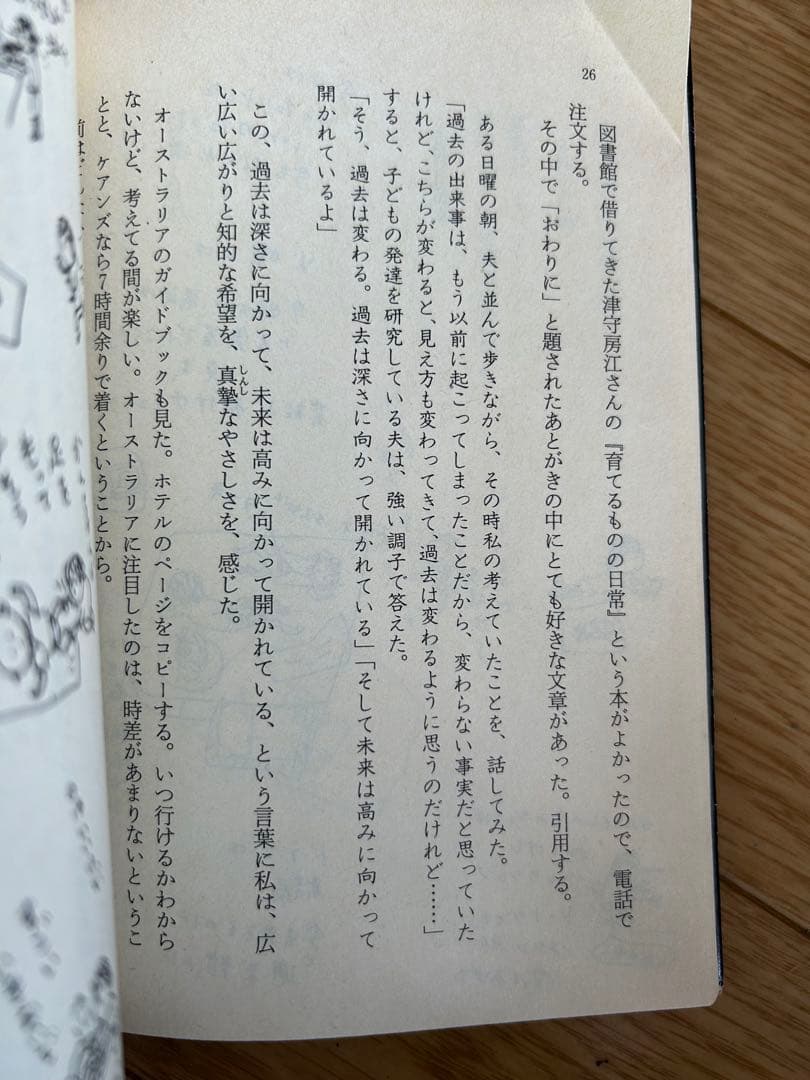 26
図書館で借りてきた津守房江さんの『育てるものの日常』という本がよかったので、電話で
注文する。
その中で「おわりに」と題されたあとがきの中にとても好きな文章があった。引用する。
ある日曜の朝、夫と並んで歩きながら、その時私の考えていたことを、話してみた。
「過去の出来事は、もう以前に起こってしまったことだから、変わらない事実だと思っていた
けれど、こちらが変わると、見え方も変わってきて、過去は変わるように思うのだけれど……」
すると、子どもの発達を研究している夫は、強い調子で答えた。
「そう、過去は変わる。過去は深さに向かって開かれている」「そして未来は高みに向かって
開かれているよ」
この、過去は深さに向かって、未来は高みに向かって開かれている、という言葉に私は、広
い広い広がりと知的な希望を、真摯なやさしさを、感じた。
しんし
オーストラリアのガイドブックも見た。ホテルのページをコピーする。いつ行けるかわから
ないけど、考えてる間が楽しい。オーストラリアに注目したのは、時差があまりないというこ
とと、ケアンズなら7時間余りで着くということから。